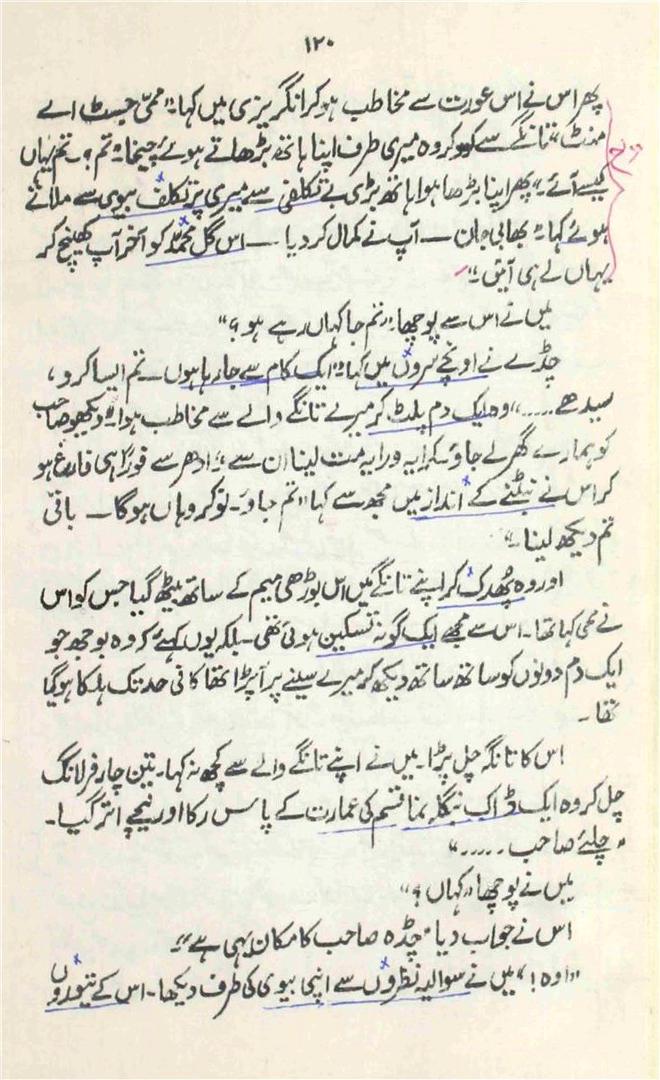 ۱۲۰
پھر اس نے اس عورت سے مخاطب ہو کر انگریزی میں کہا۔ "ممی جسٹ اے
منٹ" تانگے سے کود کر وہ میری طرف اپنا ہاتھ بڑھاتے ہوئے چیخا۔ "تم؟ ـ تم یہاں
کیسے آئے۔" پھر اپنا بڑھا ہوا ہاتھ بڑی بے تکلفی سے میری پر تکلف بیوی سے ملاتے
ہوئے کہا۔ "بھابی جان ــــ آپ نے کمال کر دیا ــــ اس گل محمد کو آخر آپ کھینچ کر
یہاں لے ہی آئیں۔"
میں نے اس سے پوچھا۔ "تم جا کہاں رہے ہو؟"
چڈے نے اونچے سروں میں کہا۔ "ایک کام سے جا رہا ہوں ـ تم ایسا کرو،
سیدھے ....." وہ ایک دم پلٹ کر میرے تانگے والے سے مخاطب ہوا۔ "دیکھو صاحب
کو ہمارے گھر لے جاؤ۔ کرایہ ورایہ مت لینا ان سے۔" ادھر سے فوراً ہی فارغ ہو
کر اس نے نبٹنے کے انداز میں مجھ سے کہا "تم جاؤ۔ نوکر وہاں ہو گا ــــ باقی
تم دیکھ لینا۔"
اور وہ پھدک کر اپنے تانگے میں اس بوڑھی میم کے ساتھ بیٹھ گیا جس کو اس
نے ممی کہا تھا۔ اس سے مجھے ایک گونہ تسکین ہوئی تھی۔ بلکہ یوں کہیے کہ وہ بوجھ جو
ایک دم دونوں کو ساتھ ساتھ دیکھ کر میرے سینے پر آ پڑا تھا کافی حد تک ہلکا ہو گیا
تھا۔
اس کا تانگہ چل پڑا۔ میں نے اپنے تانگے والے سے کچھ نہ کہا۔ تین چار فرلانگ
چل کر وہ ایک ڈاک بنگلہ نما قسم کی عمارت کے پاس رکا اور نیچے اتر گیا۔
"چلئے صاحب ....."
میں نے پوچھا "کہاں؟"
اس نے جواب دیا "چڈہ صاحب کا مکان یہی ہے"۔
"اوہ!" میں نے سوالیہ نظروں سے اپنی بیوی کی طرف دیکھا۔ اس کے تیوروں